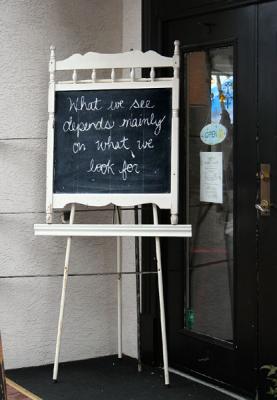 What we see
depends mainly
on what we
look for
OPEN